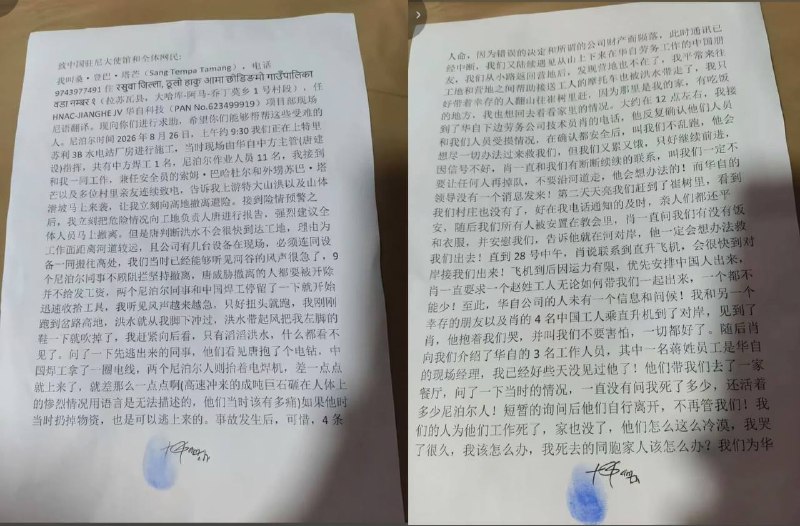 致中国驻尼大使馆和全体网民:
我叫桑·登巴·塔芒（Sang Tempa Tamang），电话
9743977491 住 रसुवा जिल्ला, ठूलो हाकु आमा छोडिङमो गाउँपालिका
वडा नम्बर १（拉苏瓦县，大哈库-阿马-乔丁莫乡 1 号村段），任
HNAC-JIANGHE JV 华自科技（PAN No.623499919）项目部现场
尼语翻译。现向你们进行求助，希望你们能够帮帮这些受难的
人。尼泊尔时间 2026 年 8 月 26 日，上午约 9:30 我们正在上特里
苏利 3B 水电站厂房进行施工，当时现场由华自中方主管(唐建
设)指挥，共有中方焊工 1 名，尼泊尔作业人员 11 名，我接到
和我一同工作，兼任安全员的索姆·巴哈杜尔和外甥苏巴·塔
芒以及多位村里亲友连续致电，告诉我上游特大山洪以及山体
滚坡马上来袭，让我立刻向高地撤离避险。接到险情预警之
后，我立刻把危险情况向工地负责人唐进行报告，强烈建议全
体人员马上撤离。但是唐判断洪水不会很快到达工地，理由为
工作面距离河道较远，且公司有几台设备在现场，必须连同设
备一同搬往高处，我们当时已经能够听见河谷的风声很急了，9
个尼泊尔同事不顾阻拦坚持撤离，唐威胁撤离的人都要被开除
并不给发工资，两个尼泊尔同事和中国焊工停留了一下就开始
迅速收拾工具，我听见风声越来越急，只好扭头就跑，我刚刚
跑到岔路高地，洪水就从我脚下冲过，洪水带起风把我左脚的
鞋一下就吹掉了，我赶紧向后看，只有滔滔洪水，什么都看不
见了。问了一下先逃出来的同事，他们看见唐抱了个电钻，中
国焊工拿了一圈电线，两个尼泊尔人则抬着电焊机，差一点点
就上来了，就差那么一点点啊(高速冲来的成吨巨石砸在人体上
的惨烈情况用语言是无法描述的，他们当时该有多痛)如果他时
当时扔掉物资，也是可以逃上来的。事故发生后，可惜，4 条
人命，因为错误的决定和所谓的公司财产而陨落，此时通讯已
经中断，我们又陆续遇见从山上下来在华自劳务工作的中国朋
友，我们从小路返回营地后，发现营地也不在了，我平常来往
工地和营地之间帮助接送工人的摩托车也被洪水带走了，我只
好带着幸存的人翻山往崔树里赶，因为那里是我的家，有吃饭
的地方，我也想回去看看家里的情况。大约在 12 点左右，我接
到了华自下边劳务公司技术员肖的电话，他反复确认他们人员
和我们人员受损情况，在确认都安全后，叫我们不乱跑，他会
想尽一切办法过来救我们，但我们又累又饿，只好继续前进，
因信号不好，肖一直和我们有断断续续的联系，叫我们一定不
要让任何人再掉队，不要沿河道走，他会想办法的！而华自的
领导没有一个消息发来！第二天天亮我们赶到了崔树里，看到
我们村庄也没有了，好在我电话通知的及时，亲人们都还平
安，随后我们所有人被安置在教会里，肖一直问我们有没有饭
和衣服，并安慰我们，告诉他就在河对岸，他一定会想办法救
我们出去！直到 28 号中午，肖说联系到直升飞机，会很快到对
岸接我们出来！飞机到后因运力有限，优先安排中国人出来，
肖一直要求一个赵姓工人无论如何带我们一起出来，一个都不
能少！至此，华自公司的人未有一个信息和问候！我和另一个
幸存的朋友以及肖的 4 名中国工人乘直升机到了对岸，见到了
肖，他抱着我们哭，并叫我们不要害怕，一切都好了。随后肖
向我们介绍了华自的 3 名工作人员，其中一名蒋姓员工是华自
的现场经理，我已经好些天没见过他了！他们带我们去了一家
餐厅，问了一下当时的情况，一直没有问我死了多少，还活着
多少尼泊尔人！短暂的询问后他们自行离开，不再管我们！我
们的人为他们工作死了，家也没了，他们怎么这么冷漠，我哭
了很久，我该怎么办，我死去的同胞家人该怎么办？我们为华